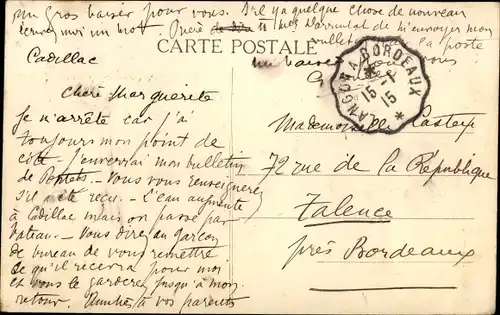 un gros baiser pour vous. S'il y a quelque chose de nouveau
écrivez moi un mot. Prière de dire à Mr d'Arrulat de m'envoyer mon
bulletin par la poste
CARTE POSTALE
Cadillac
un baiser pour vous
LANGON A BORDEAUX
15 - 1
15
Chère Marguerite
Je n'arrête car j'ai
toujours mon point de
côté. J'enverrai mon bulletin
de Portets. Vous vous renseignerez
s'il a été reçu. L'eau augmente
à Cadillac mais on passe par
bateau. Vous direz au garçon
de bureau de vous remettre
ce qu'il recevra pour moi
et vous le garderez jusqu'à mon
retour. Amitiés à vos parents
Mademoiselle Castex
72 rue de la République
Talence
près Bordeaux